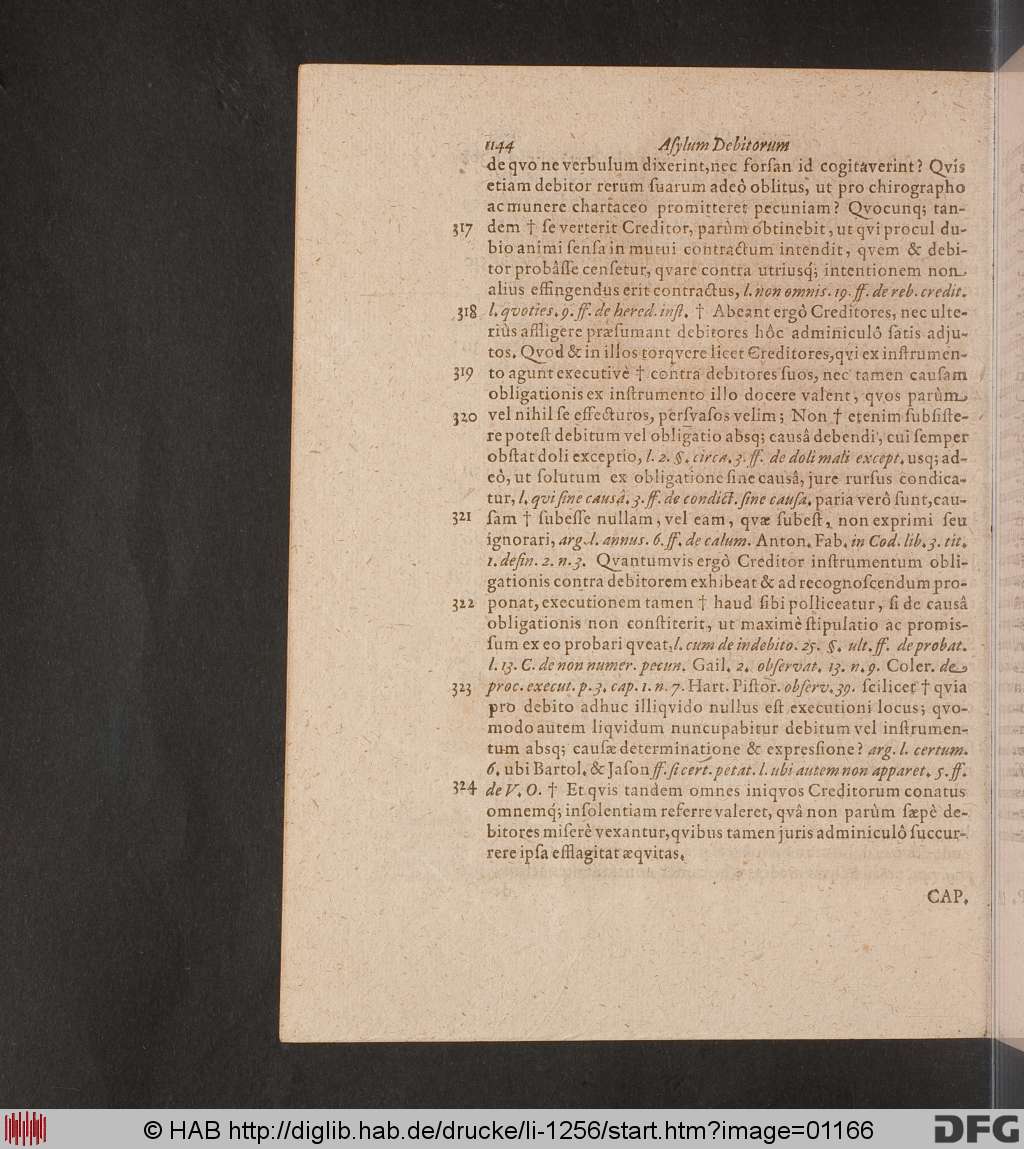 1144 Aſylum Debitorum
de qvo ne verbulum dixerint, nec forſan id cogitaverint? Qvis
etiam debitor rerum ſuarum adeò oblitus, ut pro chirographo
ac munere chartaceo promitteret pecuniam? Qvocunq; tan-
317 dem † ſe verterit Creditor, parùm obtinebit, ut qvi procul du-
bio animi ſenſa in mutui contractum intendit, qvem & debi-
tor probâſſe cenſetur, qvare contra utriusq́; intentionem non
alius effingendus erit contractus, l. non omnis. 19. ff. de reb. credit.
318 l. qvoties. 9. ff. de hered. inſt. † Abeant ergò Creditores, nec ulte-
riùs affligere præſumant debitores hôc adminiculô ſatis adju-
tos. Qvod & in illos torqvere licet Creditores, qvi ex inſtrumen-
319 to agunt executivè † contra debitores ſuos, nec tamen cauſam
obligationis ex inſtrumento illo docere valent, qvos parùm
320 vel nihil ſe effecturos, perſvaſos velim; Non † etenim ſubſiſte-
re poteſt debitum vel obligatio absq; causâ debendi, cui ſemper
obſtat doli exceptio, l. 2. §. circa. 3. ff. de doli mali except. usq; ad-
eò, ut ſolutum ex obligatione ſine causâ, jure rurſus condica-
tur, l. qvi ſine causâ. 3. ff. de condict. ſine cauſa. paria verò ſunt, cau-
321 ſam † ſubeſſe nullam, vel eam, qvæ ſubeſt, non exprimi ſeu
ignorari, arg. l. annus. 6. ff. de calum. Anton. Fab. in Cod. lib. 3. tit.
1. defin. 2. n. 3. Qvantumvis ergò Creditor inſtrumentum obli-
gationis contra debitorem exhibeat & ad recognoſcendum pro-
322 ponat, executionem tamen † haud ſibi polliceatur, ſi de causâ
obligationis non conſtiterit, ut maximè ſtipulatio ac promis-
ſum ex eo probari qveat, l. cum de indebito. 25. §. ult. ff. de probat.
l. 13. C. de non numer. pecun. Gail. 2. obſervat. 13. n. 9. Coler. de
323 proc. execut. p. 3. cap. 1. n. 7. Hart. Piſtor. obſerv. 39. ſcilicet † qvia
pro debito adhuc illiqvido nullus eſt executioni locus; qvo-
modo autem liqvidum nuncupabitur debitum vel inſtrumen-
tum absq; cauſæ determinatione & expreſſione? arg. l. certum.
6. ubi Bartol. & Jaſon ff. ſi cert. petat. l. ubi autem non apparet. 5. ff.
324 de V. O. † Et qvis tandem omnes iniqvos Creditorum conatus
omnemq́; inſolentiam referre valeret, qvâ non parùm ſæpè de-
bitores miſerè vexantur, qvibus tamen juris adminiculô ſuccur-
rere ipſa efflagitat æqvitas.
CAP.
© HAB http://diglib.hab.de/drucke/li-1256/start.htm?image=01166
DFG